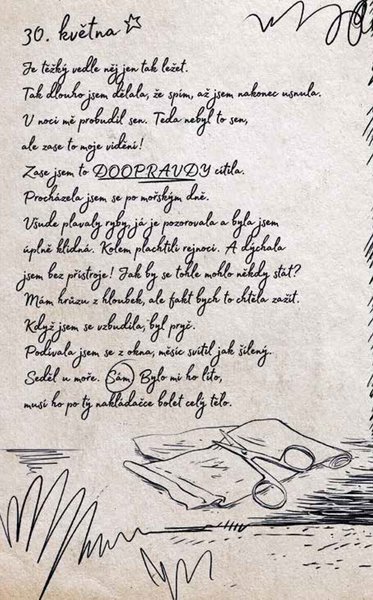 30. května
Je těžký vedle něj jen tak ležet.
Tak dlouho jsem dělala, že spím, až jsem nakonec usnula.
V noci mě probudil sen. Teda nebyl to sen,
ale zase to moje vidění!
Zase jsem to DOOPRAVDY cítila.
Procházela jsem se po mořským dně.
Všude plavaly ryby, já je pozorovala a byla jsem
úplně klidná. Kolem plachtili rejnoci. A dýchala
jsem bez přístroje! Jak by se tohle mohlo někdy stát?
Mám hrůzu z hloubek, ale fakt bych to chtěla zažít.
Když jsem se vzbudila, byl pryč.
Podívala jsem se z okna, měsíc svítil jak šílený.
Seděl u moře. Sám. Bylo mi ho líto,
musí ho po tý nakládačce bolet celý tělo.